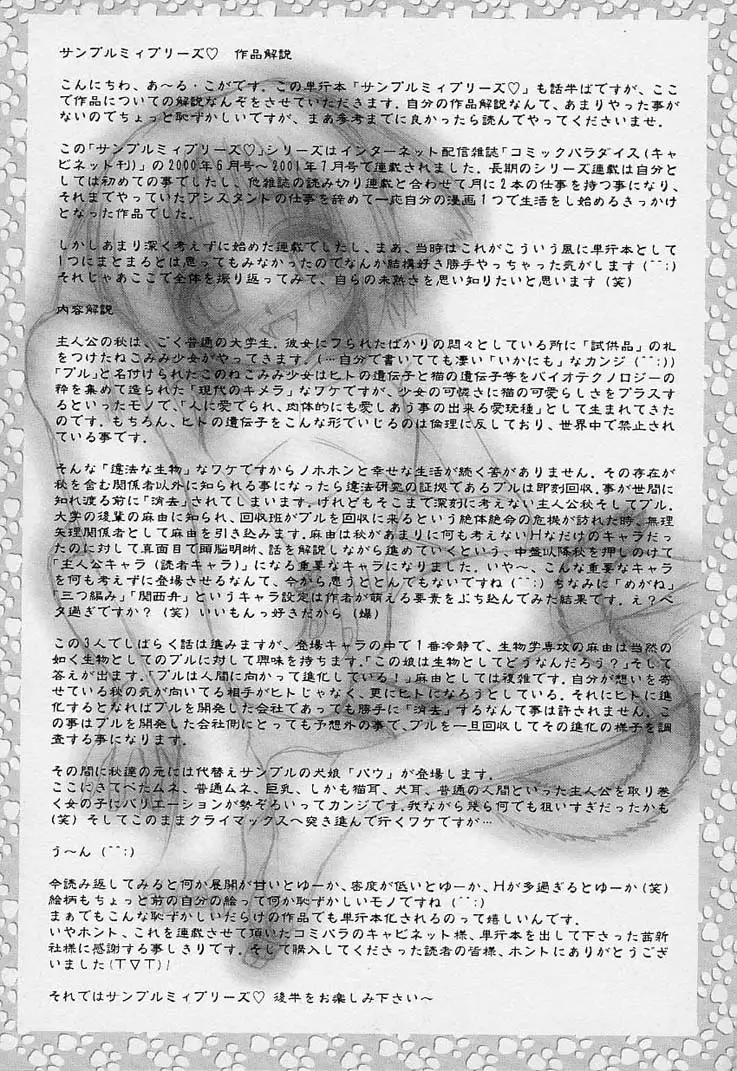 サンプルミィプリーズ♡　作品解説
こんにちわ、あ～る・こがです。この単行本「サンプルミィプリーズ♡」も話半ばですが、ここ
で作品についての解説なんぞをさせていただきます。自分の作品解説なんて、あまりやった事が
ないのでちょっと恥ずかしいですが、まあ参考までに良かったら読んでやってくださいませ。
この「サンプルミィプリーズ♡」シリーズはインターネット配信雑誌「コミックパラダイス(キャ
ビネット刊)」の2000年6月号～2001年7月号で連載されました。長期のシリーズ連載は自分と
しては初めての事でしたし、他雑誌の読み切り連載と合わせて月に2本の仕事を持つ事になり、
それまでやっていたアシスタントの仕事を辞めて一応自分の漫画1つで生活をし始めるきっかけ
となった作品でした。
しかしあまり深く考えずに始めた連載でしたし、まあ、当時はこれがこういう風に単行本として
1つにまとまるとは思ってもみなかったのでなんか結構好き勝手やっちゃった気がします(^^;)
それじゃあここで全体を振り返ってみて、自らの未熟さを思い知りたいと思います(笑)
内容解説
主人公の秋は、ごく普通の大学生。彼女にフられたばかりの悶々としている所に「試供品」の札
をつけたねこみみ少女がやってきます。(…自分で書いてても凄い「いかにも」なカンジ(^^;))
「プル」と名付けられたこのねこみみ少女はヒトの遺伝子と猫の遺伝子等をバイオテクノロジーの
粋を集めて造られた「現代のキメラ」なワケですが、少女の可憐さに猫の可愛らしさをプラスす
るといったモノで、「人に愛でられ、肉体的にも愛しあう事の出来る愛玩種」として生まれてきた
のです。もちろん、ヒトの遺伝子をこんな形でいじるのは倫理に反しており、世界中で禁止され
ている事です。
そんな「違法な生物」なワケですからノホホンと幸せな生活が続く筈がありません。その存在が
秋を含む関係者以外に知られる事になったら違法研究の証拠であるプルは即刻回収、事が世間に
知れ渡る前に「消去」されてしまいます。けれどもそこまで深刻に考えない主人公秋そしてプル。
大学の後輩の麻由に知られ、回収班がプルを回収に来るという絶体絶命の危機が訪れた時、無理
矢理関係者として麻由を引き込みます。麻由は秋があまりに何も考えないHなだけのキャラだっ
たのに対して真面目で頭脳明晰、話を解説しながら進めていくという、中盤以降秋を押しのけて
「主人公キャラ(読者キャラ)」になる重要なキャラになりました。いや～、こんな重要なキャラ
を何も考えずに登場させるなんて、今から思うととんでもないですね(^^;)ちなみに「めがね」
「三つ編み」「関西弁」というキャラ設定は作者が萌える要素をぶち込んでみた結果です。え？ベ
タ過ぎですか？(笑)いいもんっ好きだから(爆)
この3人でしばらく話は進みますが、登場キャラの中で1番冷静で、生物学専攻の麻由は当然の
如く生物としてのプルに対して興味を持ちます。「この娘は生物としてどうなんだろう？」そして
答えが出ます。「プルは人間に向かって進化している！」麻由としては複雑です。自分が想いを寄
せている秋の気が向いてる相手がヒトじゃなく、更にヒトになろうとしている。それにヒトに進
化するとなればプルを開発した会社であっても勝手に「消去」するなんて事は許されません。こ
の事はプルを開発した会社側にとっても予想外の事で、プルを一旦回収してその進化の様子を調
査する事になります。
その間に秋達の元には代替えサンプルの犬娘「バウ」が登場します。
ここにきてぺたムネ、普通ムネ、巨乳、しかも猫耳、犬耳、普通の人間といった主人公を取り巻
く女の子にバリエーションが勢ぞろいってカンジです。我ながら幾ら何でも狙いすぎだったかも
(笑)そしてこのままクライマックスへ突き進んで行くワケですが…
う～ん(^^;)
今読み返してみると何か展開が甘いとゆーか、密度が低いとゆーか、Hが多過ぎるとゆーか(笑)
絵柄もちょっと前の自分の絵って何か恥ずかしいモノですね(^^;)
まぁでもこんな恥ずかしいだらけの作品でも単行本化されるのって嬉しいんです。
いやホント、これを連載させて頂いたコミパラのキャビネット様、単行本を出して下さった茜新
社様に感謝する事しきりです。そして購入してくださった読者の皆様、ホントにありがとうござ
いました(T▽T)!
それではサンプルミィプリーズ♡ 後半をお楽しみ下さい～